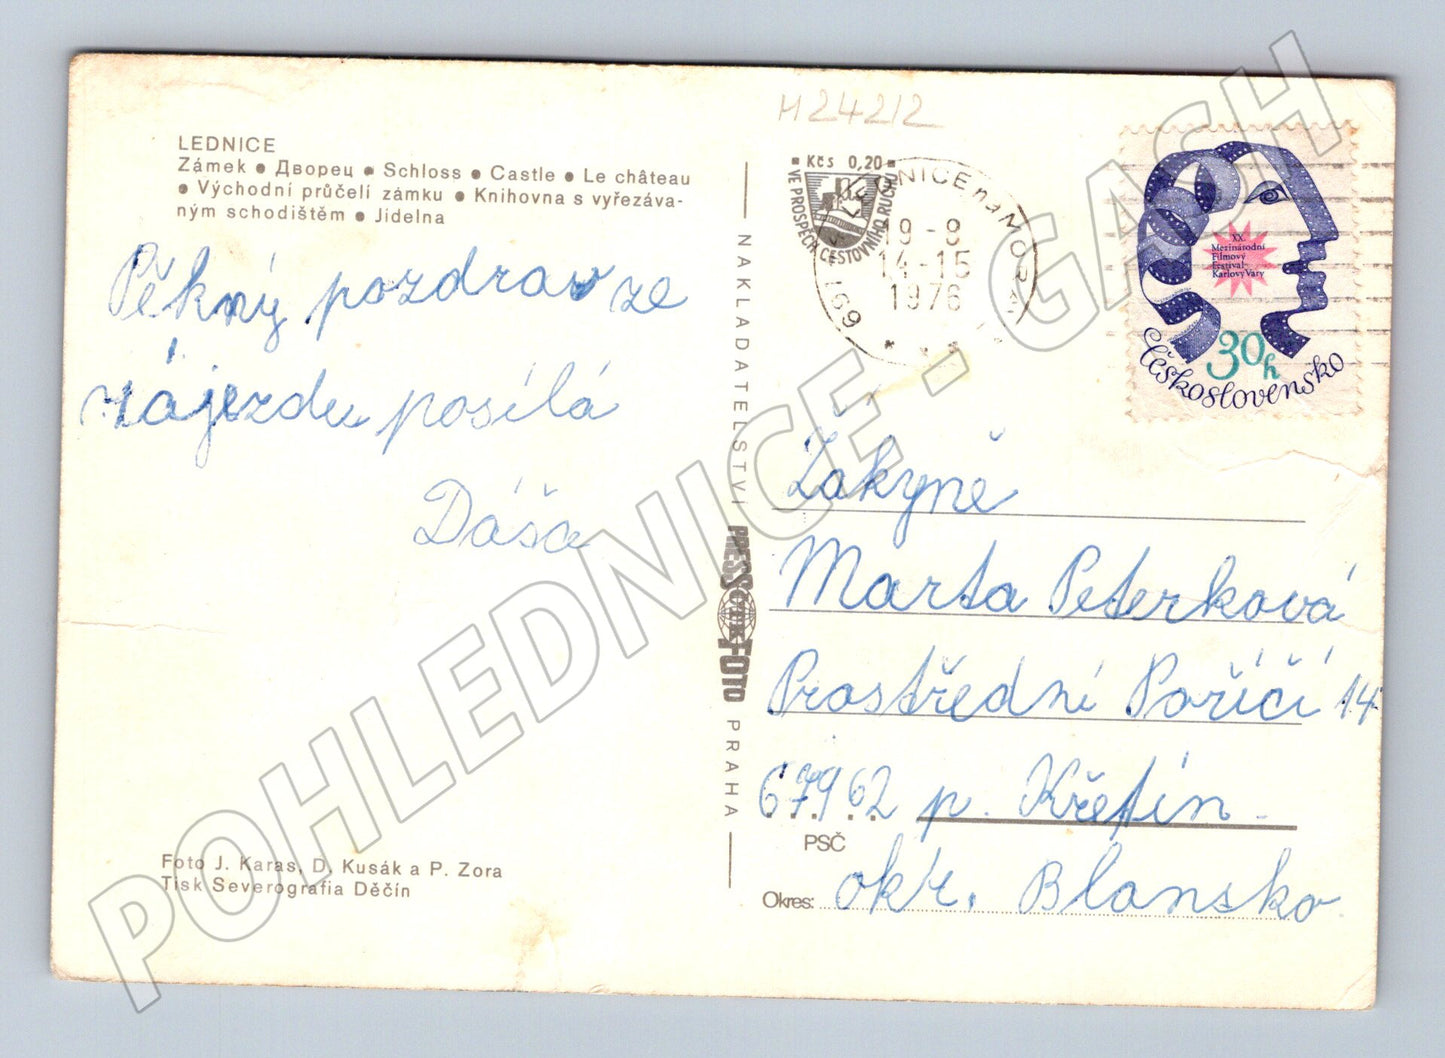 H 24212
LEDNICE
Zámek • Дворец • Schloss • Castle • Le château
• Východní průčelí zámku • Knihovna s vyřezáva-
ným schodištěm • Jídelna
Pěkný pozdrav ze
zájezdu posílá
Dáša
Foto J. Karas, D. Kusák a P. Zora
Tisk Severografia Děčín
NAKLADATELSTVÍ PRESSFOTO PRAHA
Kčs 0,20
VE PROSPĚCH CESTOVNÍHO RUCHU
LEDNICE na MOR
19-8
14-15
1976
691
XX.
Mezinárodní
Filmový
Festival
Karlovy Vary
30h
Československo
Žákyně
Marta Peterková
Prostřední Poříčí 14
67962 p. Křetín
PSČ
Okres: okr. Blansko
POHLEDNICE - GASH